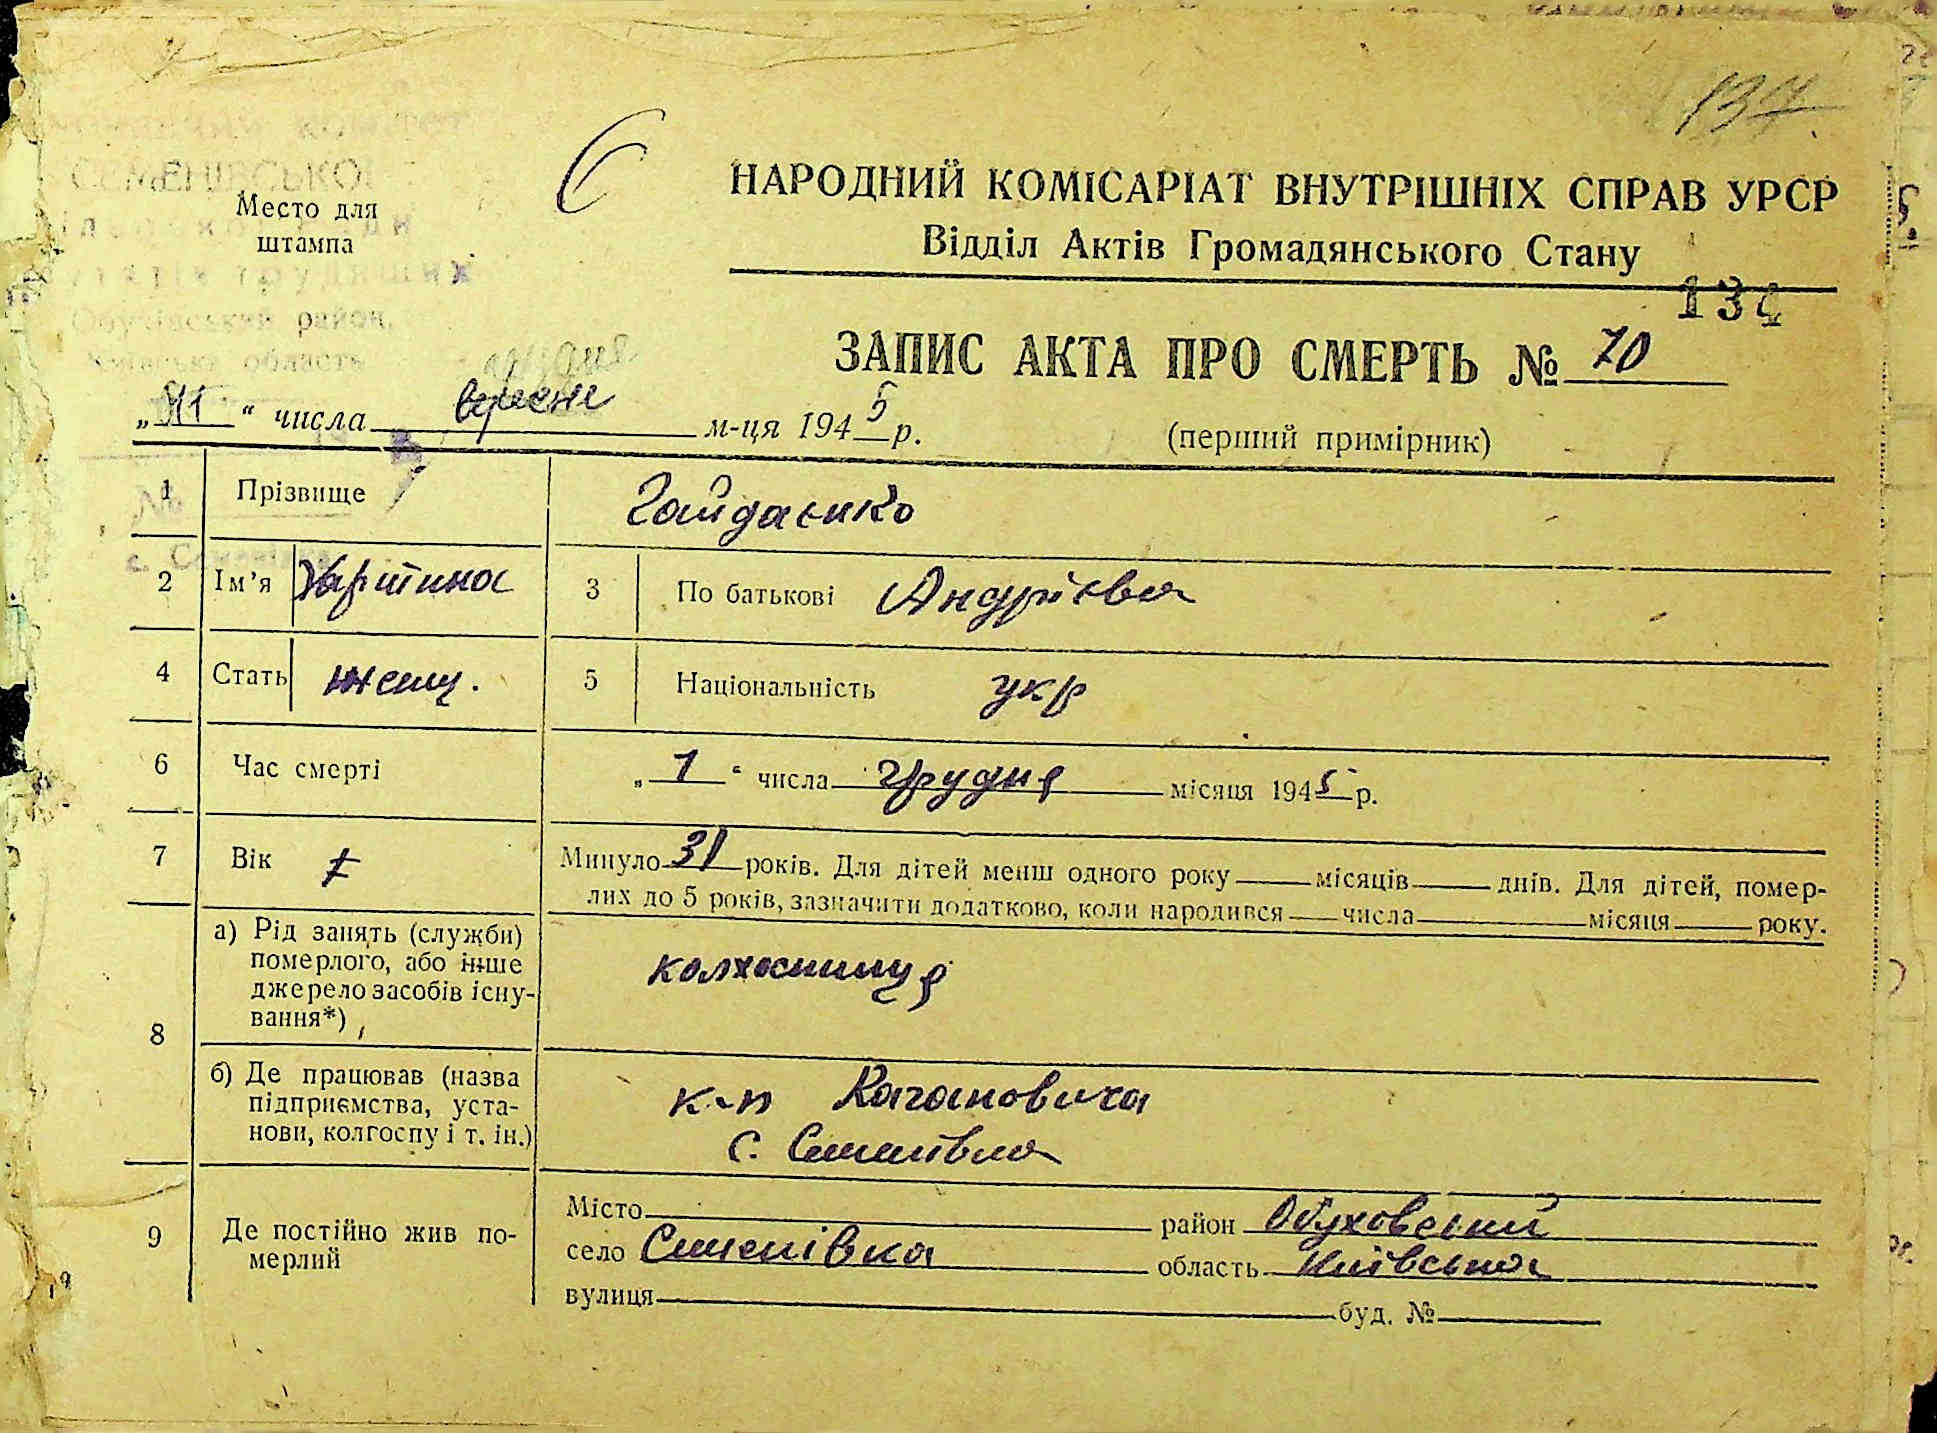 137
6
СЕМЕНІВСЬКОЇ
Место для
штампа
Обухівський район,
область
НАРОДНИЙ КОМІСАРІАТ ВНУТРІШНІХ СПРАВ УРСР
Відділ Актів Громадянського Стану
134
ЗАПИС АКТА ПРО СМЕРТЬ № 70
грудня
" " числа вересня м-ця 1945 р.
(перший примірник)
1 Прізвище Гайдаенко
2 Ім'я Хрітина 3 По батькові Андріева
4 Стать женщ. 5 Національність укр
6 Час смерті „1“ числа грудня місяця 1945 р.
7 Вік Минуло 31 років. Для дітей менш одного року місяців днів. Для дітей, помер-
лих до 5 років, зазначити додатково, коли народився числа місяця року.
8 а) Рід занять (служби)
померлого, або інше
джерело засобів існу-
вання*)
колхосниця
б) Де працював (назва
підприємства, уста-
нови, колгоспу і т. ін.)
к-п Кагановича
с. Семенівка
9 Де постійно жив по-
мерлий
Місто район Обуховський
село Семенівка область Київська
вулиця буд. №